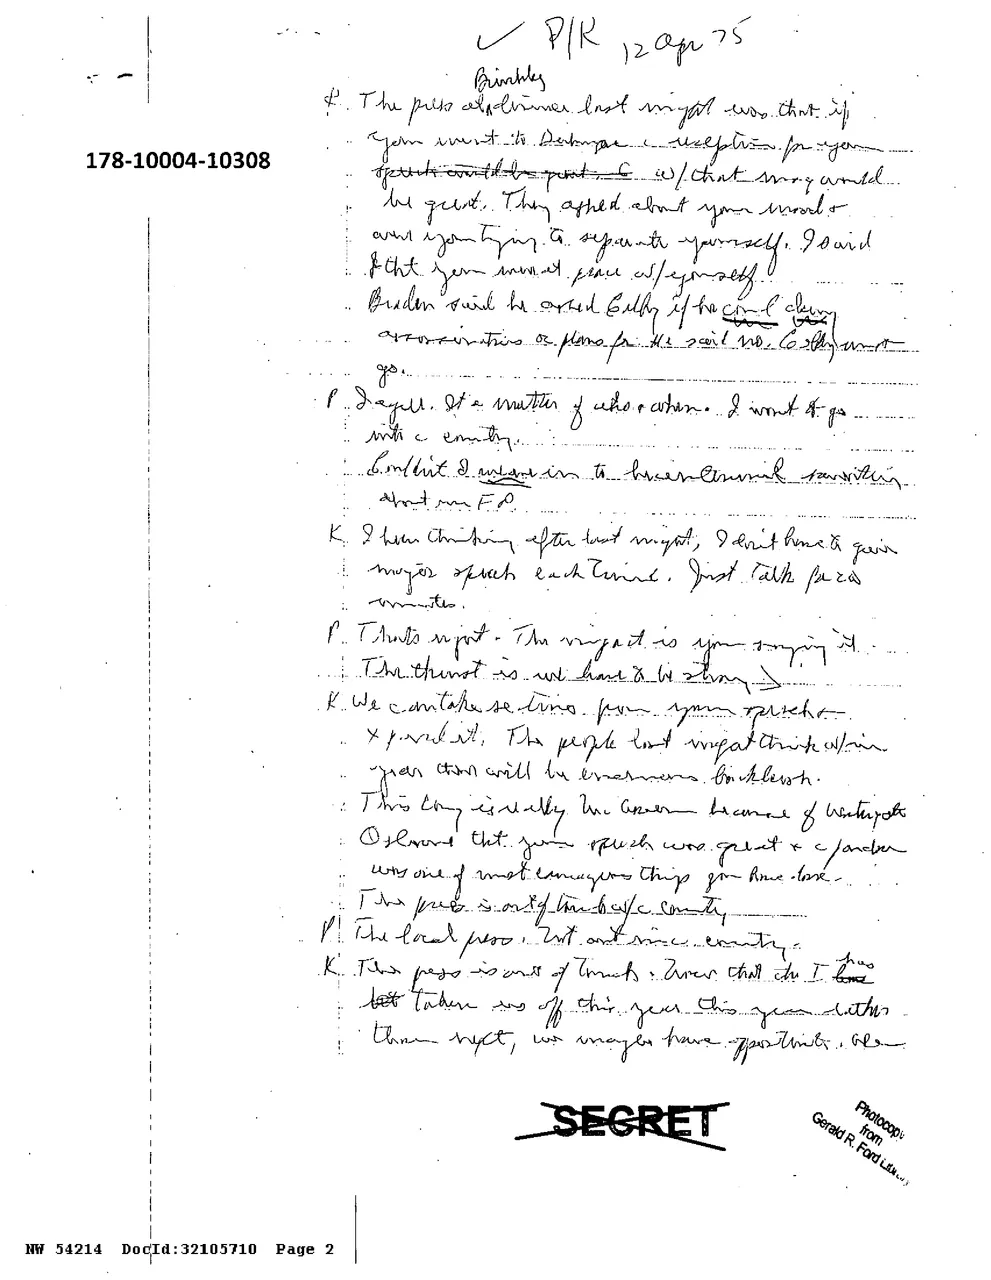 ✓ P/K 12 Apr 75
Brinkley
K. The press at dinner last night was that if
you went to a reception for you
speech would be great. w/ that may would
be great. They asked about your mood +
aren't you trying to separate yourself. I said
that you were at peace w/ yourself
Braden said he asked Colby if he could deny
assassinations or plans for. He said no. Colby must
go.
P. I agree. It's a matter of who + when. I want to go
into a country.
Couldn't I in to bicentennial something
about our F P.
K. I been thinking after last night, I don't have to give
major speech each time. Just talk for 20
minutes.
P. That's right. The impact is you saying it.
The thrust is we have to be strong
K. We can take sections from your speech +
expand it. The people last night think w/in
year there will be enormous backlash.
This Cong is really McGovern because of Watergate
Osborne that your speech was great + candor
was one of most courageous things you have done.
The press is out of touch w/ country
P. The local press. Not out in country.
K. The press is out of touch. Now that the T has
taken us off this year this year rather
than next, we maybe have opportunity. We
178-10004-10308
SECRET
Photocopy
from
Gerald R. Ford Library
NW 54214 DocId:32105710 Page 2